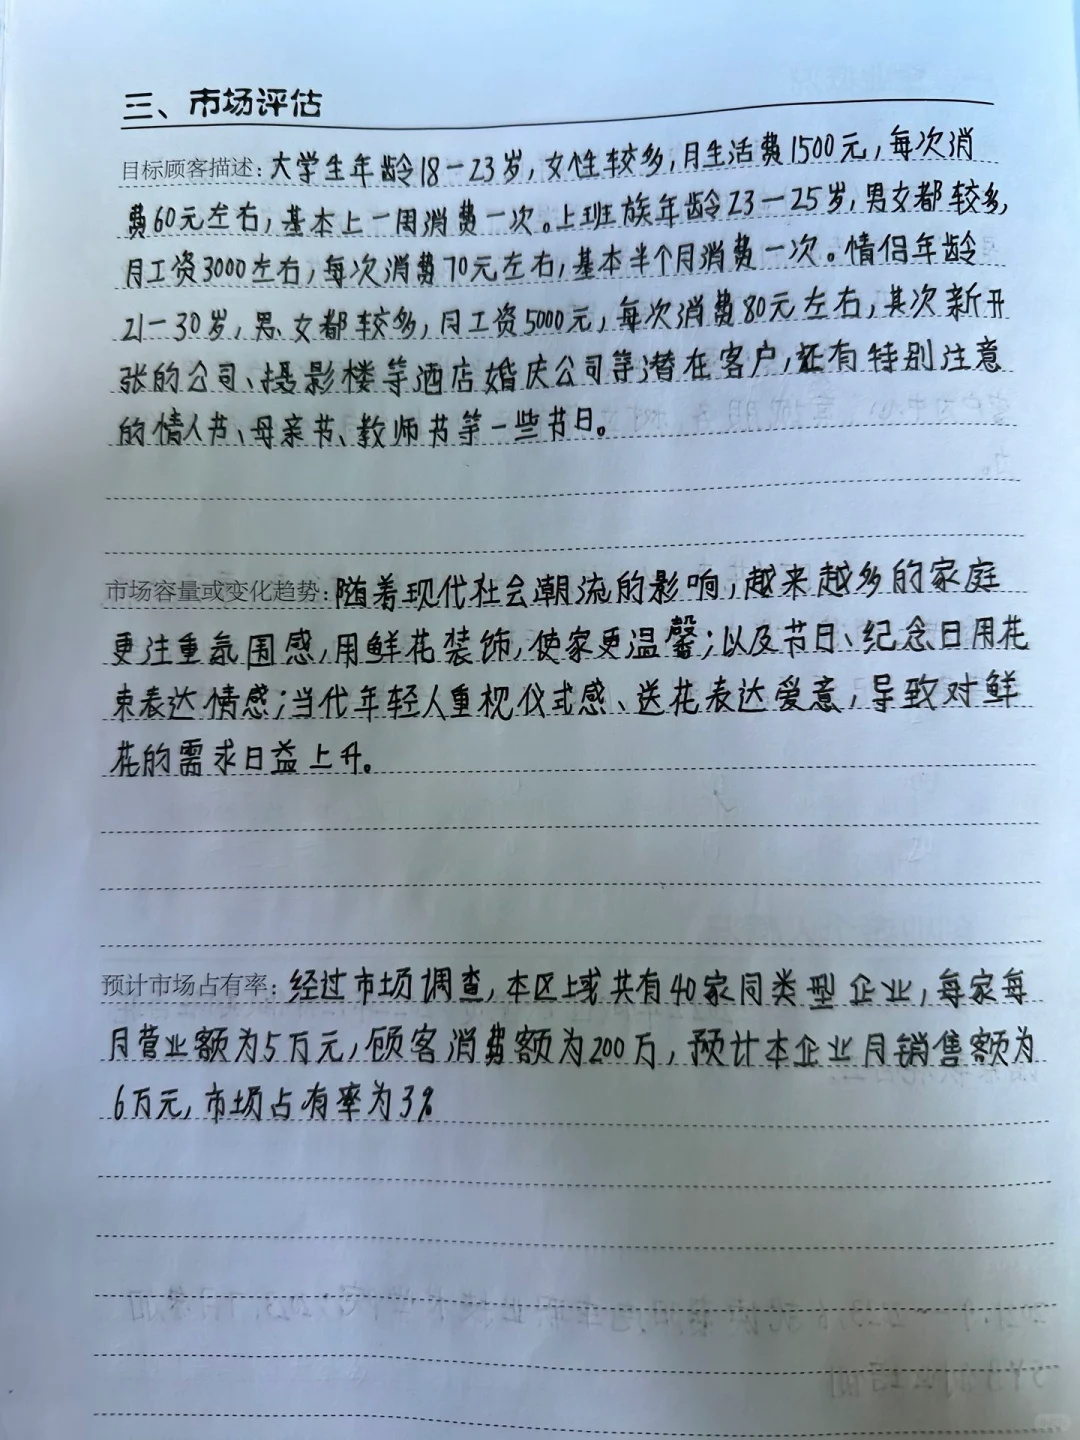 三、市场评估
目标顾客描述:大学生年龄18-23岁,女性较多,月生活费1500元,每次消
费60元左右,基本上一周消费一次。上班族年龄23-25岁,男女都较多,
月工资3000左右,每次消费70元左右,基本半个月消费一次。情侣年龄
21-30岁,男、女都较多,月工资5000元,每次消费80元左右,其次新开
张的公司、摄影楼等酒店婚庆公司等潜在客户,还有特别注意
的情人节、母亲节、教师节等一些节日。
市场容量或变化趋势:随着现代社会潮流的影响,越来越多的家庭
更注重氛围感,用鲜花装饰,使家更温馨;以及节日、纪念日用花
束表达情感;当代年轻人重视仪式感、送花表达爱意,导致对鲜
花的需求日益上升。
预计市场占有率:经过市场调查,本区域共有40家同类型企业,每家每
月营业额为5万元,顾客消费额为200万,预计本企业月销售额为
6万元,市场占有率为3%